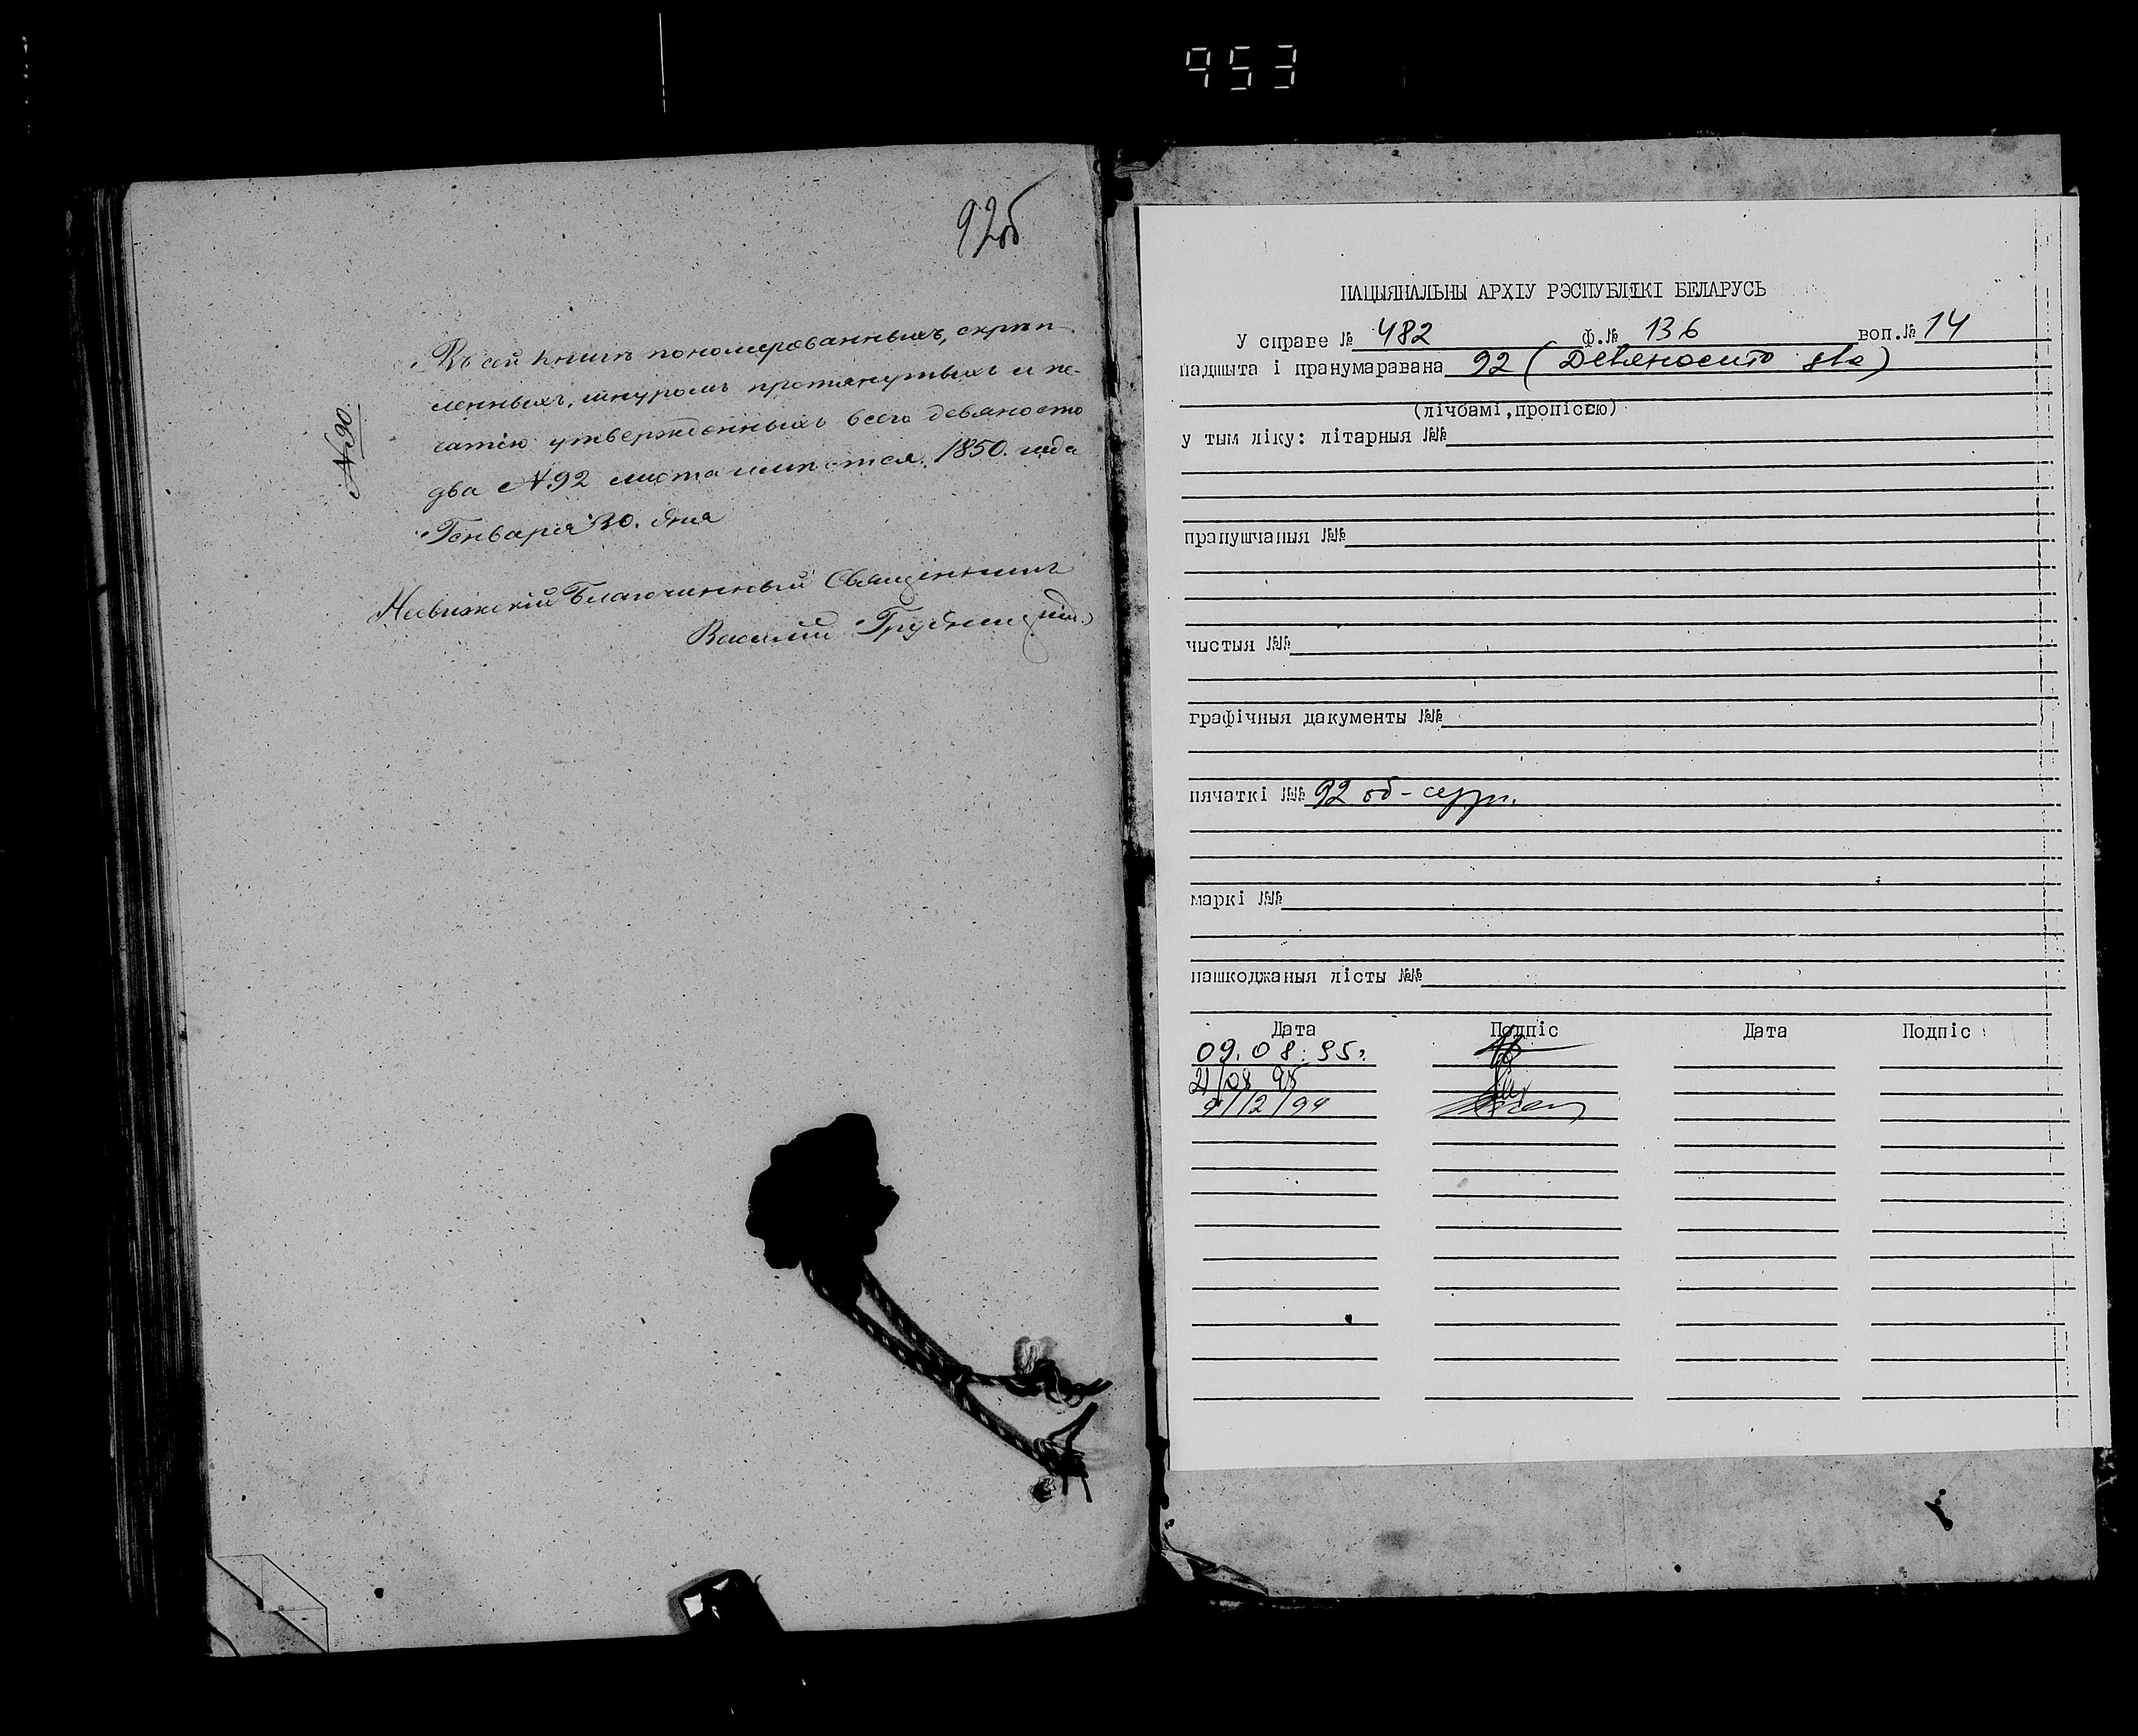 953
92об
№ 90.
Въ сей книгѣ пономерованныхъ, скрѣп-
ленныхъ, шнуромъ протянутыхъ и пе-
чатію утвержденныхъ всего девяносто
два № 92 листа имѣется. 1850. года
Генваря 30. дня
Несвижскій Благочинный Священникъ
Василій
НАЦЫЯНАЛЬНЫ АРХІУ РЭСПУБЛІКІ БЕЛАРУСЬ
У справе № 482 ф.№ 136 воп.№ 14
падшыта і пранумаравана 92 (Девяносто два)
(лічбамі,пропіссю)
у тым ліку: літарныя №№
прапушчаныя №№
чыстыя №№
графічныя дакументы №№
пячаткі №№ 92 об - сург.
маркі №№
пашкоджаныя лісты №№
Дата Подпіс Дата Подпіс
09.08.95г.
21/08 95
9/12/94